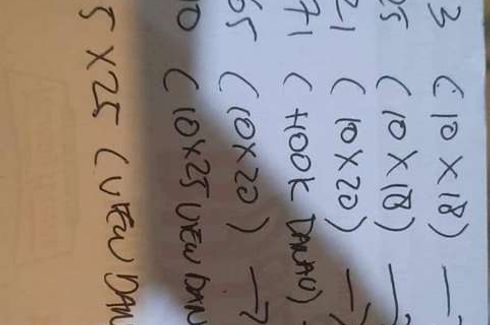 3 (10 X 18) —
5 (10 X 18) —
21 (10 X 20) —7
71 (HOOK DANAU)
65 (10X20) —7
(10X25 VIEW DAN
5 X 25 (VIEW DAN